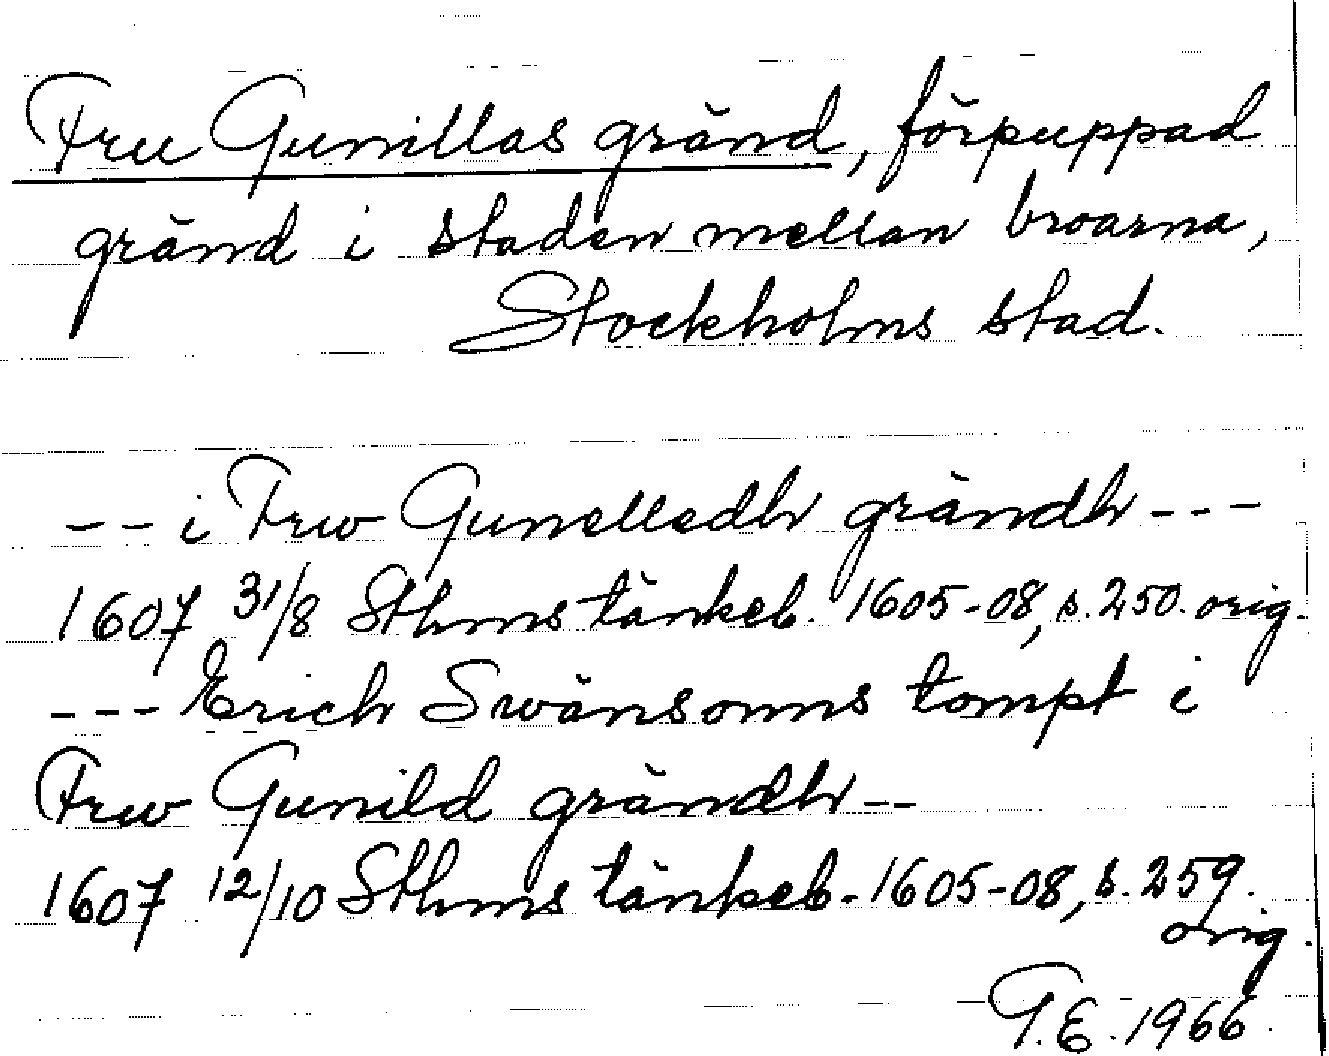 Fru Gunillas gränd, förpuppad
gränd i staden mellan broarna,
Stockholms stad.
-- i Frw Gunelledh grändh ---
1607 31/8 Sthms tänkeb. 1605-08, s. 250. orig.
--- Erich Swänsonns tompt i
Frw Gunild grändh --
1607 12/10 Sthms tänkeb. 1605-08, s. 259.
orig.
T.E. 1966.